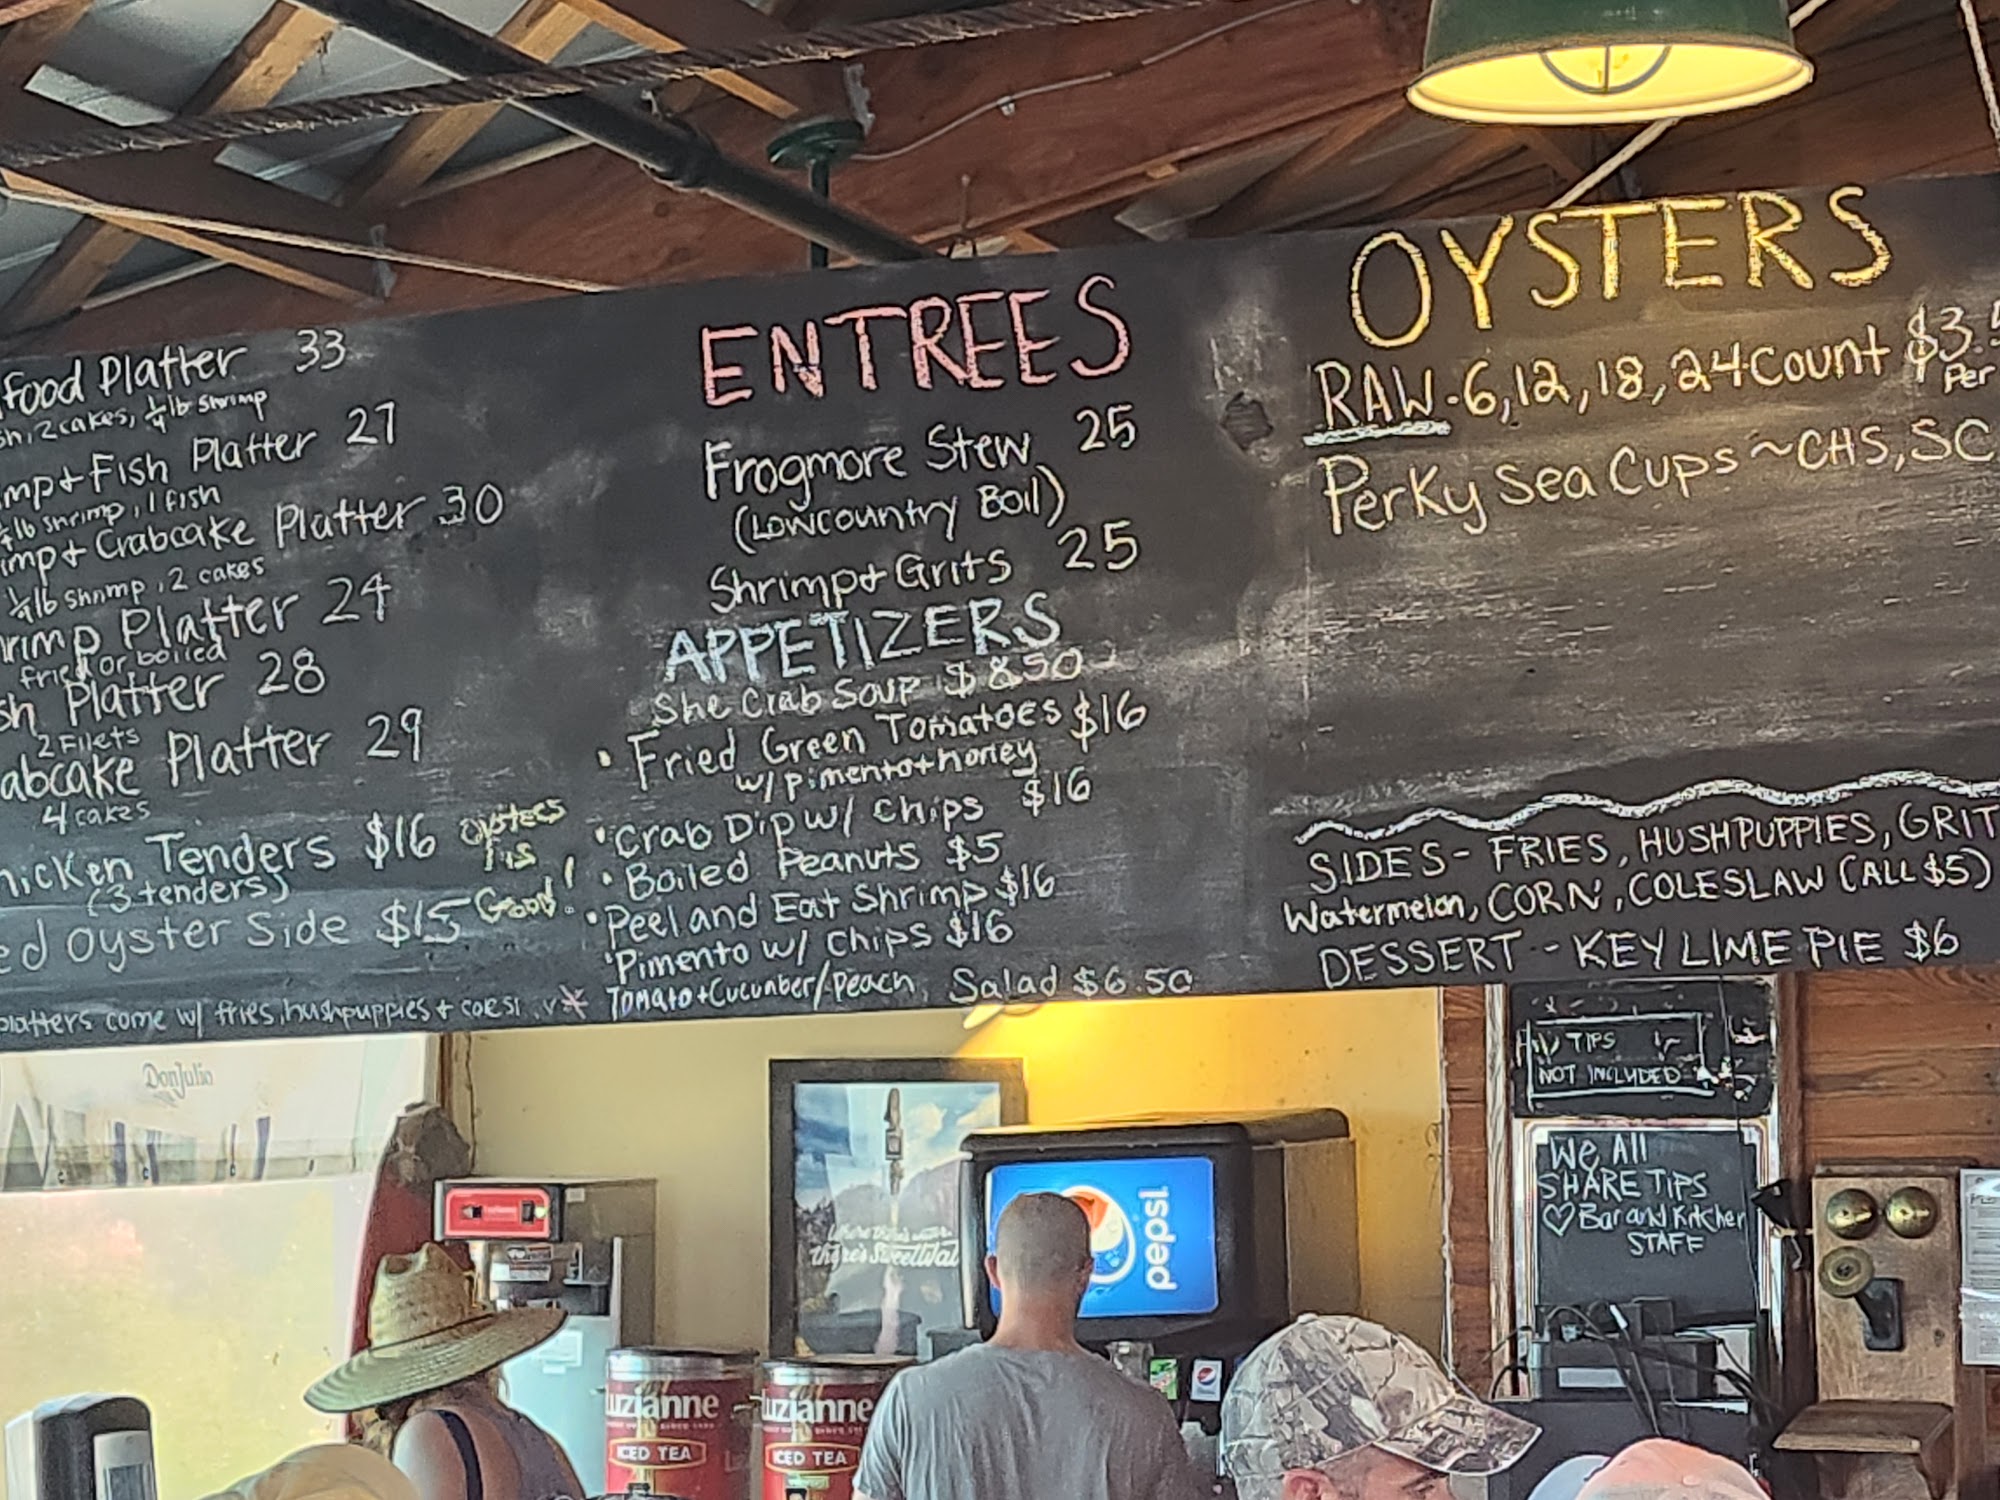 food Platter 33
2 cakes, 1/4 lb shrimp
Fish Platter 27
1/4 lb shrimp, 1 fish
Crabcake Platter 30
1/4 lb shrimp, 2 cakes
rimp Platter 24
fried or boiled
sh Platter 28
2 Filets
abcake Platter 29
4 cakes
hicken Tenders $16
(3 tenders)
ed Oyster Side $15
Good!
platters come w/ fries, hushpuppies +
ENTREES
Frogmore Stew 25
(Lowcountry Boil)
Shrimp + Grits 25
APPETIZERS
She Crab Soup $8.50
• Fried Green Tomatoes $16
w/ pimento + honey
• Crab Dip w/ Chips $16
• Boiled Peanuts $5
• Peel and Eat Shrimp $16
• Pimento w/ Chips $16
Tomato + Cucumber/Peach Salad $6.50
OYSTERS
RAW - 6, 12, 18, 24 count $3.5
Per
Perky Sea Cups ~ CHS, SC
SIDES - FRIES, HUSHPUPPIES, GRIT
Watermelon, CORN, COLESLAW (ALL $5)
DESSERT - KEY LIME PIE $6
TIPS
NOT INCLUDED
We All
SHARE TIPS
♡ Bar and Kitchen
STAFF
DonJulio
there's SweetWat
pepsi
uzianne
ICED TEA
uzianne
ICED TEA